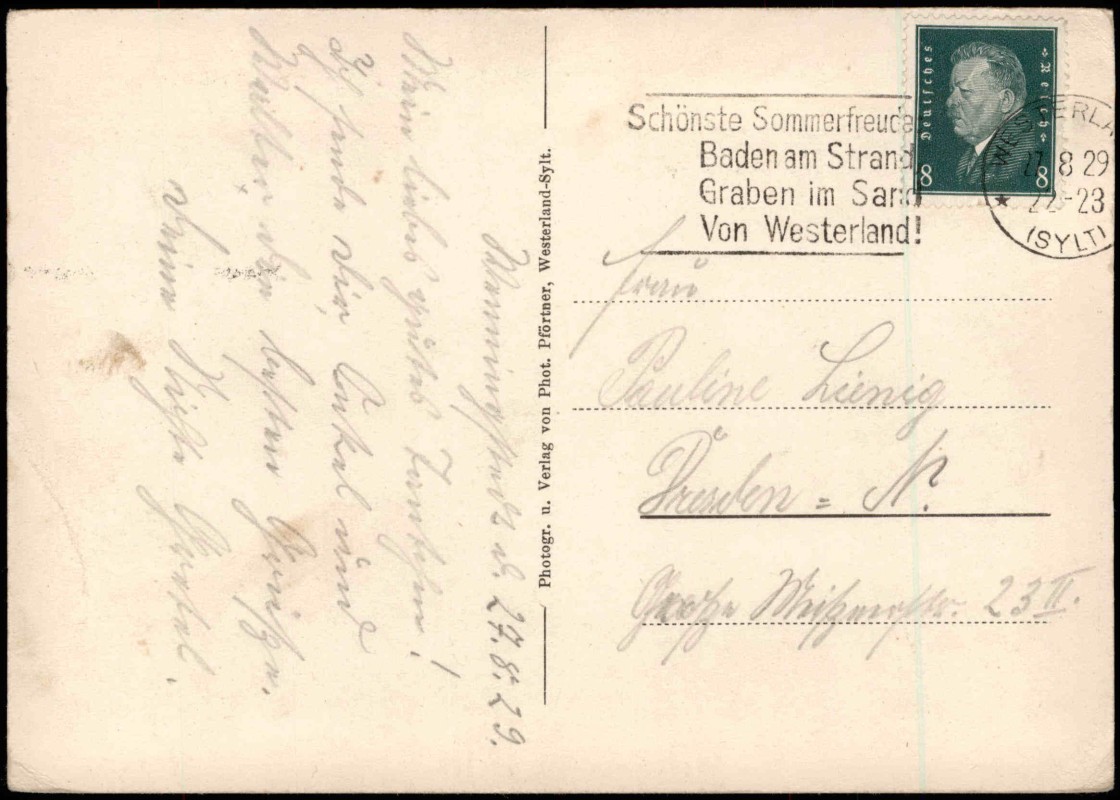 Wenningstedt d. 27.8.29.
Mein liebes gutes Tantchen!
Ich sende Dir, Onkel und
Walter die besten Grüße.
Deine Nichte
Photogr. u. Verlag von Phot. Pförtner, Westerland-Sylt.
Schönste Sommerfreude
Baden am Strand
Graben im Sand
Von Westerland!
Deutsches Reich
8 8
WESTERLA
27 8 29
22-23
(SYLT)
Frau
Pauline Lienig
Dresden = N.
Große Meißnerstr. 23 II.